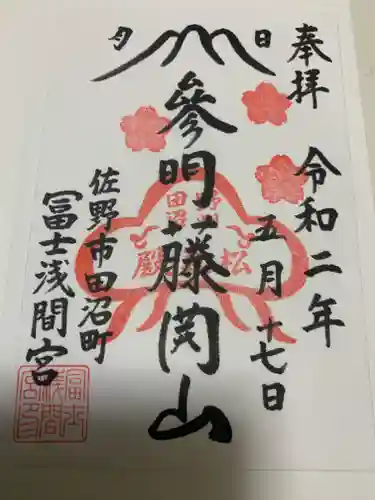 奉拝
令和二年
五月十七日
日
月
參明藤開山
佐野市田沼町
冨士浅間宮
野州
田沼
松殿
冨士
浅間
宮印